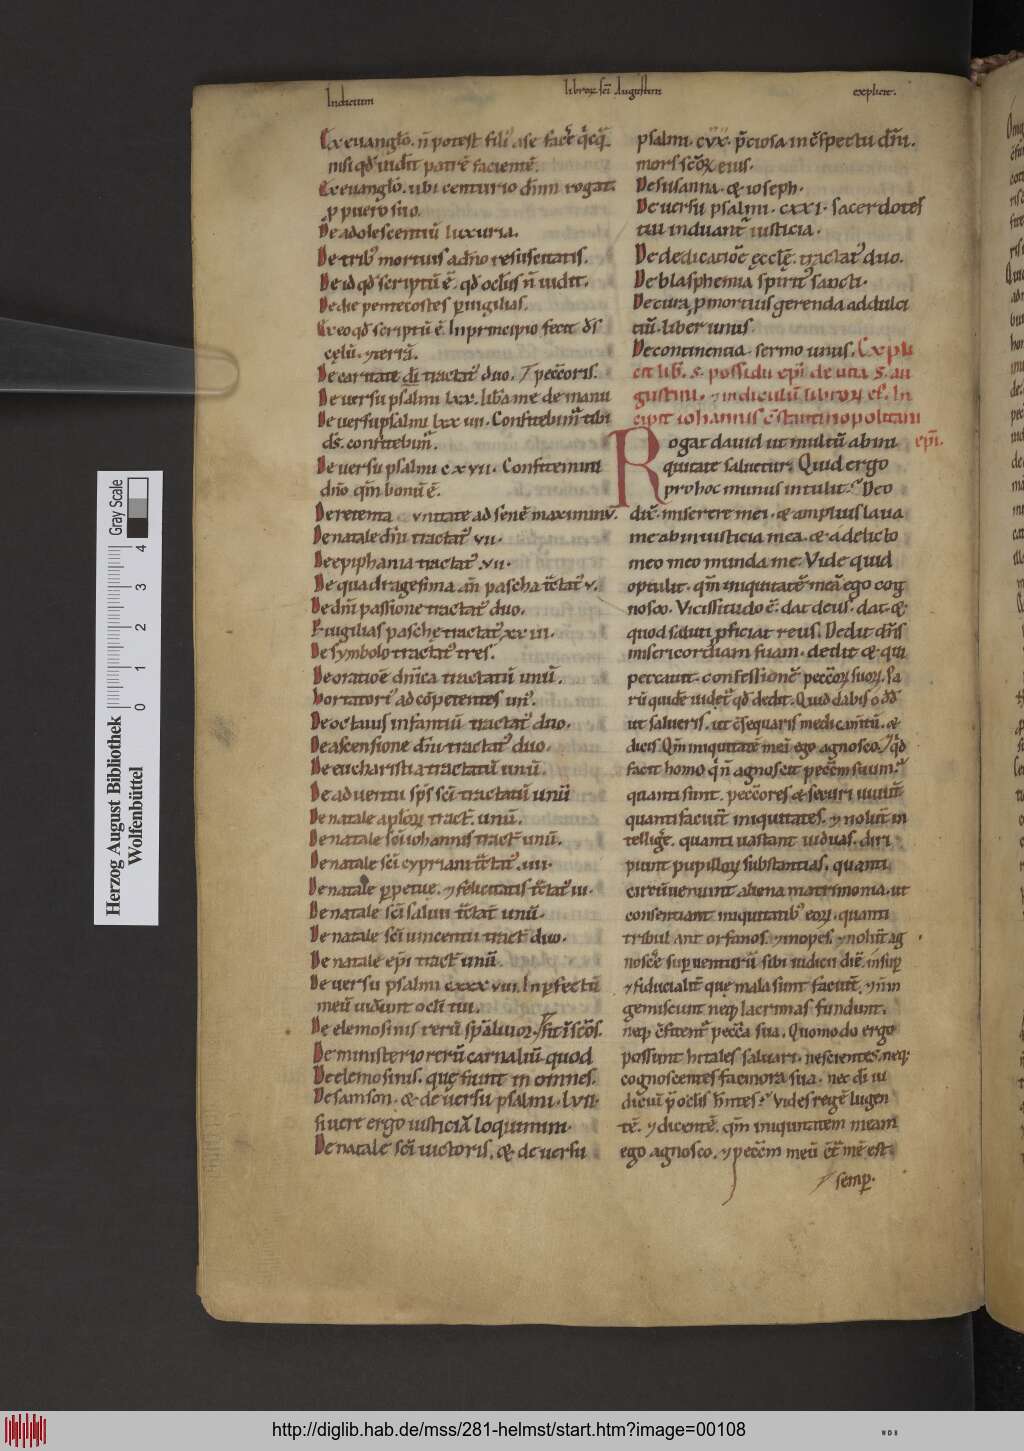 Indicium librorꝫ scī Augustini explicit.
Ex euangłō. n̄ potest fili᷒ a se facẽ q̃cq̃
nisi qđ uid̄it patrē facientē.
Ex euangłō. ubi centurio dñm rogat
p puero suo.
De adolescentiū luxuria.
De trib᷒ mortuis a dño resuscitatis.
De id qđ scriptū ē. qđ ocłus n̄ uidit.
De die pentecostes puigilias.
Ex eo qđ scriptū ē. In principio fecit dſ
cęlū. ⁊ terrā.
De caritate dī tractat᷒ duo. ⁊ peccōris.
De uersu psalmi lxx. lib̄a me de manu
De uersu psalmi lxx iiii. Confitebim᷒ tibi
dſ. confitebim᷒.
De uersu psalmi c x vii. Confitemini
dño qm̄ bonū ē.
De retenta vnitate ad senē maximinū.
De natale dñi tractat᷒ vii.
De epiphania tractat᷒ .vii.
De quadragesima añ pascha tc̄tat᷒ v.
De dñi passione tractat᷒ duo.
P uigilias paschę tractat᷒ xx iii.
De symbolo tractat᷒ tres.
De oratioē dñica tractatū unū.
Hortatori᷒ ad cōpetentes un᷒.
De octauis infantiū tractat᷒ duo.
De ascensione dñi tractat᷒ duo.
De eucharistia tractatū unū.
De aduentu sp̄s scī tractatū unū
De natale apłoꝝ tract̄. unū.
De natale scī iohannis tract̄ unū.
De natale scī cypriani tc̄tat᷒ .iiii.
De natale ppetuę. ⁊ felicitatis tc̄tat᷒ iii.
De natale scī saluii tc̄tat̄ unū.
De natale scī uincentii tract̄ duo.
De natale epī tract̄ unū.
De uersu psalmi cxxx viii. Inpfectū
meū uid̄unt oclī tui.
De elemosinis rerū sp̄aliuoꝝ.
De ministerio rerū carnaliū quod
De elemosinis. quę fiunt in omnes.
De samson. & de uersu psalmi. lvii.
si uere ergo iusticiā loquimini.
De natale scī uictoris. & de uersu
psalmi. cvx. p̄ciosa in c̄spectu dñi.
mors scōꝝ eius.
De susanna. & ioseph.
De uersu psalmi. cxxi. sacerdotes
tui induant᷒ iusticia.
De dedicatiōē ęccłę. tractat᷒ duo.
De blasphemia spirit᷒ sancti.
De cura p mortuis gerenda ad dulci
tiū. liber unus
De continentia. sermo unus. Expli
cit lib̄. s. possidii epī de uita s. au
gustini. ⁊ indiculū libroꝝ ei᷒. In
cipit iohannis c̄stantinopolitani
epī.
Rogat dauid ut multū ab ini
quitate saluetur. Quid ergo
pro hoc munus intulit? Deo
dic̄. miserere mei. & amplius laua
me ab iniusticia mea. & a delicto
meo meo munda me. Vide quid
optulit. qm̄ iniquitatē meā ego cog
nosco. Vicissitudo ē. dat deus. dat &
quod saluti pficiat reus. Dedit dñs
misericordiam suam. dedit & qui
peccauit. confessionē peccōꝝ suoꝝ. Pa
rū quidē uidet᷒ qđ dedit. Quid dabis
ut salueris. ut c̄sequaris medicam̄tū. &
dicis Qm̄ iniquitatē meā ego agnosco.
facit homo q̄ n̄ agnoscit peccm̄ suum?
quanti sunt. peccōres & securi uiuūt
quanti faciūt iniquitates. ⁊ nolūt in
tellig̃e. quanti uastant uiduas. diri
piunt pupilloꝝ substantias. quanti
circūueniunt aliena matrimonia. ut
consentiant iniquitatib᷒ eoꝝ. quanti
tribulant orfanos. ⁊ inopes. ⁊ nolūt ag
nosc̃e sup uenturū sibi iudicii diē. insup
⁊ fiducialit̄ quę mala sunt faciūt. ⁊ n̄ in
gemiscunt neqꝫ lacrimas fundunt.
neqꝫ c̄fitent᷒ pecc̄a sua. Quomodo ergo
possunt hi tales saluari. nescientes. neqꝫ
cognoscentes facinora sua. nec dī iu
diciū p̄ oclīs h̄ntes? Vides regē lugen
tē. ⁊ dicentē. qm̄ iniquitatem meam
ego agnosco. ⁊ peccm̄ meū c̄t̄ mē est
semp.
Herzog August Bibliothek
Wolfenbüttel
0 1 2 3 4
Gray Scale
http://diglib.hab.de/mss/281-helmst/start.htm?image=00108
WDB